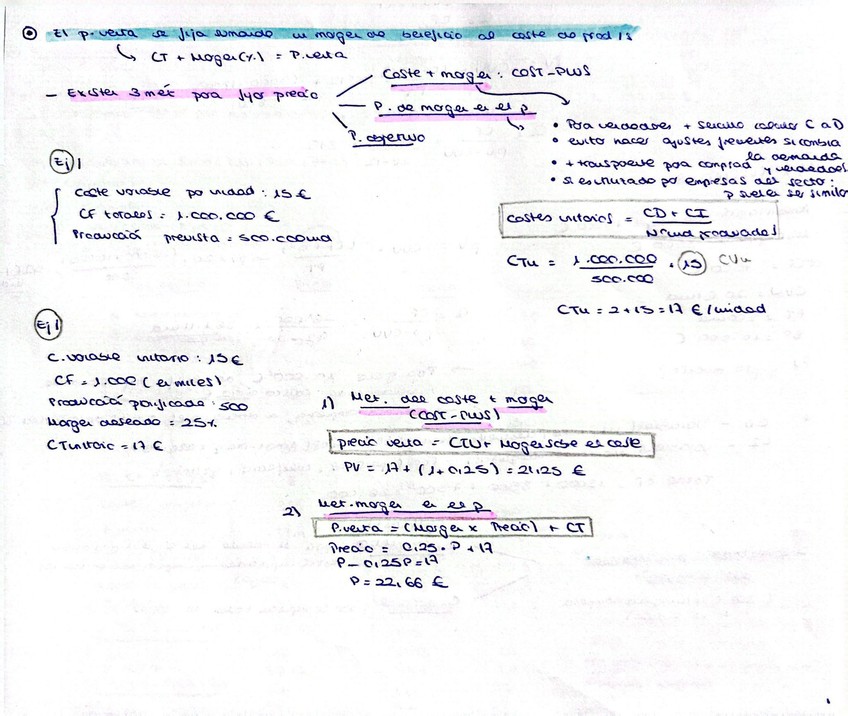 El p.venta se fija sumando un margen de beneficio al coste de prod
CT + Margen(%) = P.venta
- Existen 3 mét para fijar precio
Coste + margen : COST-PLUS
P. de margen en el p
P. objetivo
• Para vendedores + sencillo calcular C a D
• evita hacer ajustes frecuentes si cambia la demanda
• + transparente para comprad y vendedores
• si es imitado por empresas del sector: p suelen ser similar
Ej 1
Coste variable por unidad : 15 €
CF totales = 1.000.000 €
Producción prevista = 500.000
Costes unitarios = CD + CI
Nºund
CTu = 1.000.000 + 15 CVu
500.000
CTu = 2 + 15 = 17 €/unidad
Ej 1
C. variable unitario : 15 €
CF = 1.000 (en miles)
Producción planificada : 500
Margen deseado = 25%
CTunitario = 17 €
1) Met. del coste + margen
(COST-PLUS)
precio venta = CTU + Margen sobre el coste
PV = 17 + (1 + 0,25) = 21,25 €
2) Met. margen en el p
P.venta = (Margen x Precio) + CT
Precio = 0,25 · P + 17
P - 0,25P = 17
P = 22,66 €